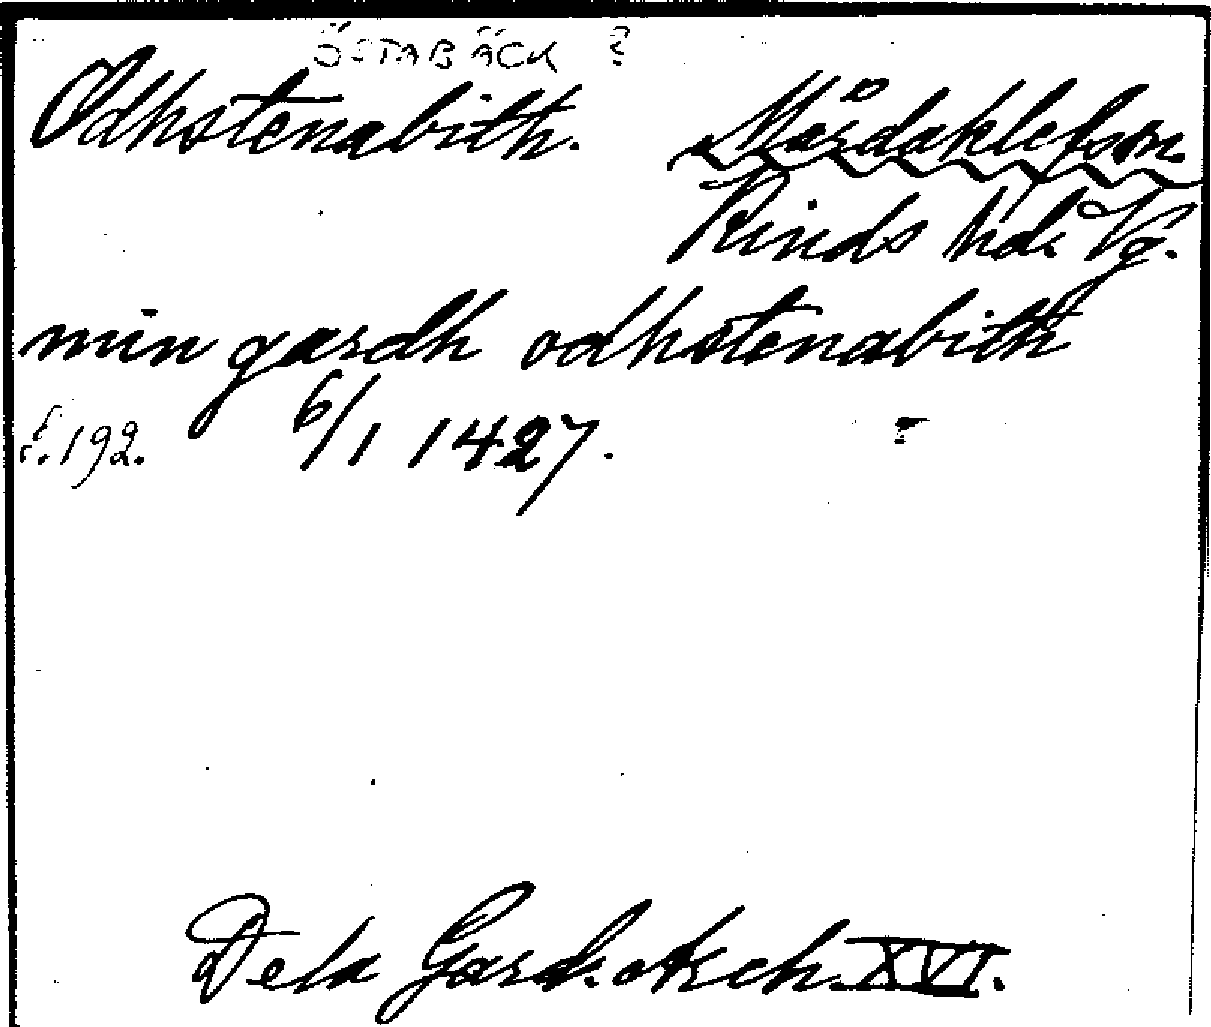 ÖSTABÄCK ?
Odhstenabith. Mårdaklefsm.
Kinds hd. Vg.
min gardh odhstenabith
s. 192. 6/1 1427.
De la Gard. arch. XVI.